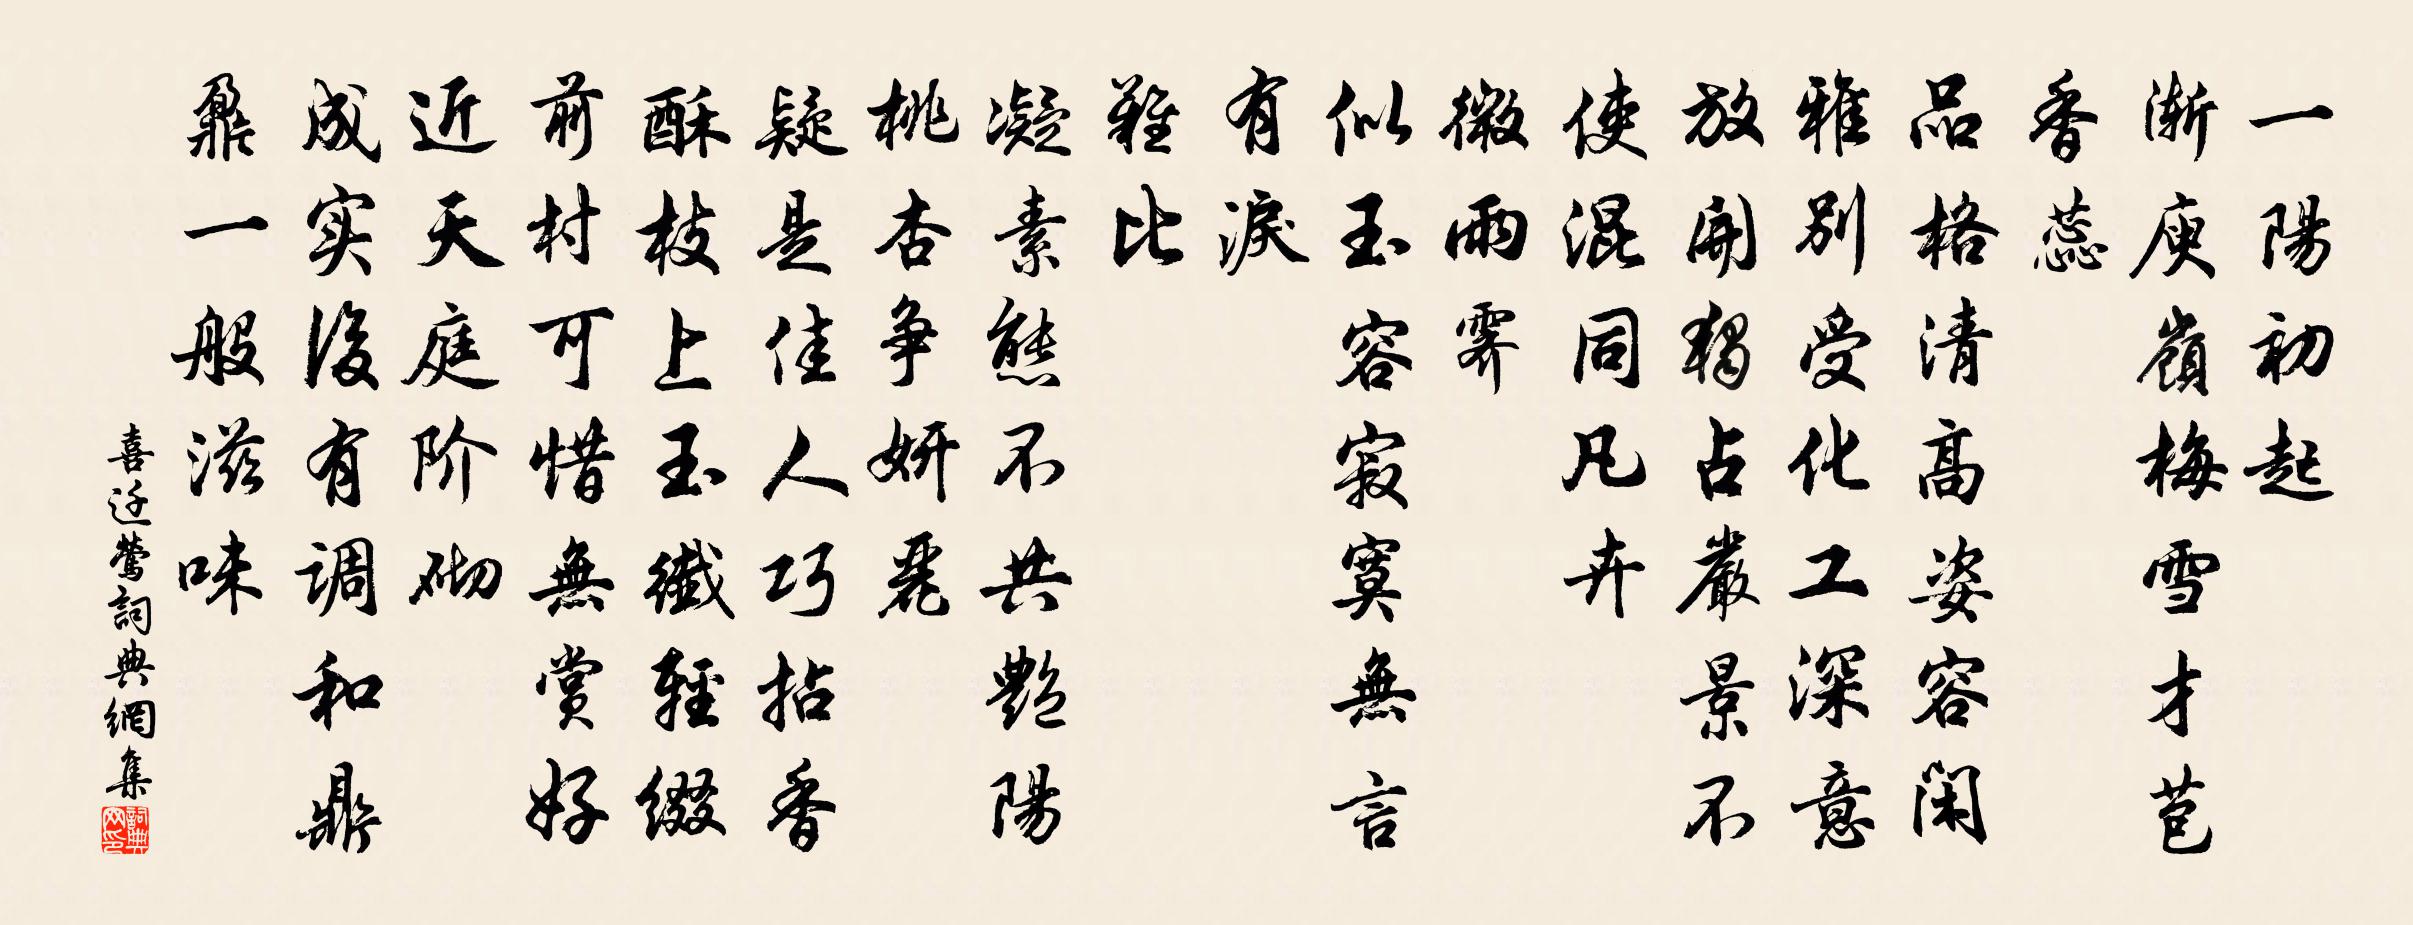 一陽初起
漸庾嶺梅雪才苞
香蕊
品格清高姿容閑
雅別受化工深意
放開獨占嚴景不
使混同凡卉
微雨霽
似玉容寂寞無言
有淚
難比
凝素態不共艷陽
桃杏爭妍麗
疑是佳人巧拈香
酥枝上玉纖輕綴
前村可惜無賞好
近天庭阶砌
成实後有调和鼎
鼐一般滋味
喜迁鶯詞典網集
詞典网印